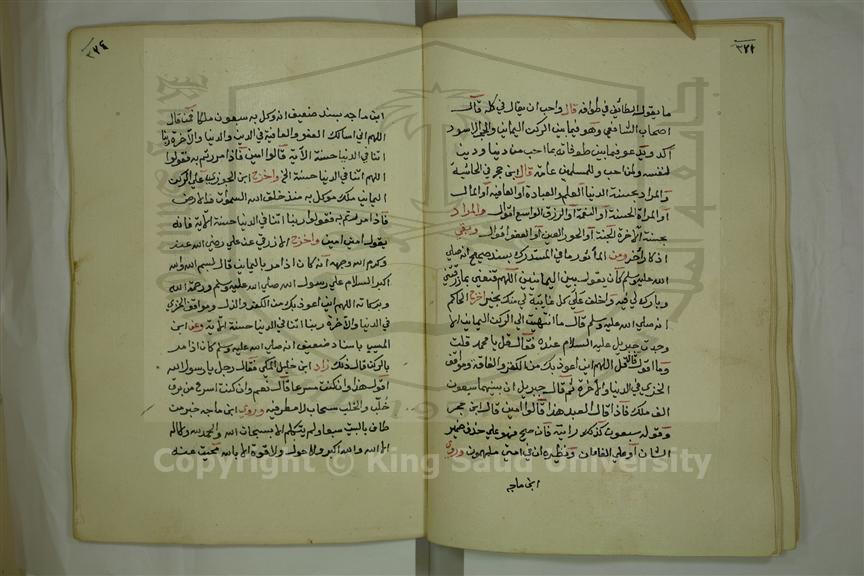 ٣٢٣
ما يقوله الطائف في طوافه قال واحب ان يقال في كله قال
اصحاب الشافعي وهو فيما بين الركن اليماني والحجر الاسود
آكد ويدعو فيما بين طوفاته بما احب من دينا ودين
لنفسه ولمن احب وللمسلمين عامة قال ابن حجر في الحاشية
والمراد بحسنة الدنيا العلم والعبادة او العافية او المال
او المراة الحسنة او النعمة او الرزق الواسع اقوال والمراد
بحسنة الآخرة الجنة او الحور العين او العفو اقوال
اذكار اخر المأثور ما في المستدرك بسند صحيح انه صلى
الله عليه وسلم كان يقول بين اليمانيين اللهم قنعني بما رزقتني
وبارك لي فيه واخلف على كل غائبة لي منك بخير اخرج الحاكم
انه صلى الله عليه وسلم قال ما انتهيت الى الركن اليماني الا
وجدت جبريل عليه السلام عنده قال قل يا محمد قلت
وما اقول قال قل اللهم اني اعوذ بك من الكفر والفاقة ومواقف
الخزي في الدنيا والآخرة ثم قال جبريل ان بينهما سبعون
الف ملك فاذا قال العبد هذا قالوا آمين قال ابن حجر
وقوله سبعون كذلك رأيته فان صح فهو على حذف ضمير
الشان او على ونظيره ان في امتي ملهمون وروى
ابن ماجه
٣٢٤
ابن ماجه بسند ضعيف انه وكل به سبعون ملكا فمن قال
اللهم اني اسالك العفو والعافية في الدين والدنيا والآخرة ربنا
اتنا في الدنيا حسنة الآية قالوا آمين فاذا مررتم به فقولوا
اللهم اتنا في الدنيا حسنة الخ واخرج ابن الجوزي على الركن
اليماني ملك موكل به منذ خلق الله السموات والارض
فاذا مررتم به فقولوا ربنا اتنا في الدنيا حسنة الآية فانه
يقول آمين آمين واخرج الازرقي عن علي رضي الله عنه
وكرم الله وجهه انه كان اذا مر باليماني قال بسم الله والله
اكبر السلام على رسول الله صلى الله عليه وسلم ورحمة الله
وبركاته اللهم اني اعوذ بك من الكفر والذل ومواقف الخزي
في الدنيا والآخرة ربنا اتنا في الدنيا حسنة الآية وعن ابن
المسيب باسناد ضعيف انه صلى الله عليه وسلم كان اذا مر
بالركن قال ذلك زاد ابن خليل المكي فقال رجل يا رسول الله
اقول هذا وان كنت مسرعا قال نعم وان كنت اسرع من برق
خلب والخلب سحاب لا مطر فيه وروى ابن ماجه خبر من
طاف بالبيت سبعا ولم يتكلم الا بسبحان الله والحمد لله ولا اله
الا الله والله اكبر ولا حول ولا قوة الا بالله محيت عنه
Copyright © King Saud University